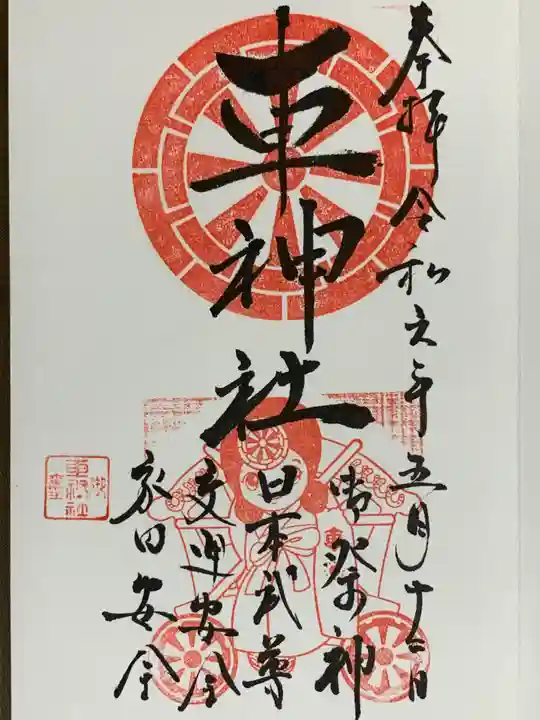 奉拝 令和六年五月十二日
車神社
御祭神
日本武尊
交通安全
家田安全